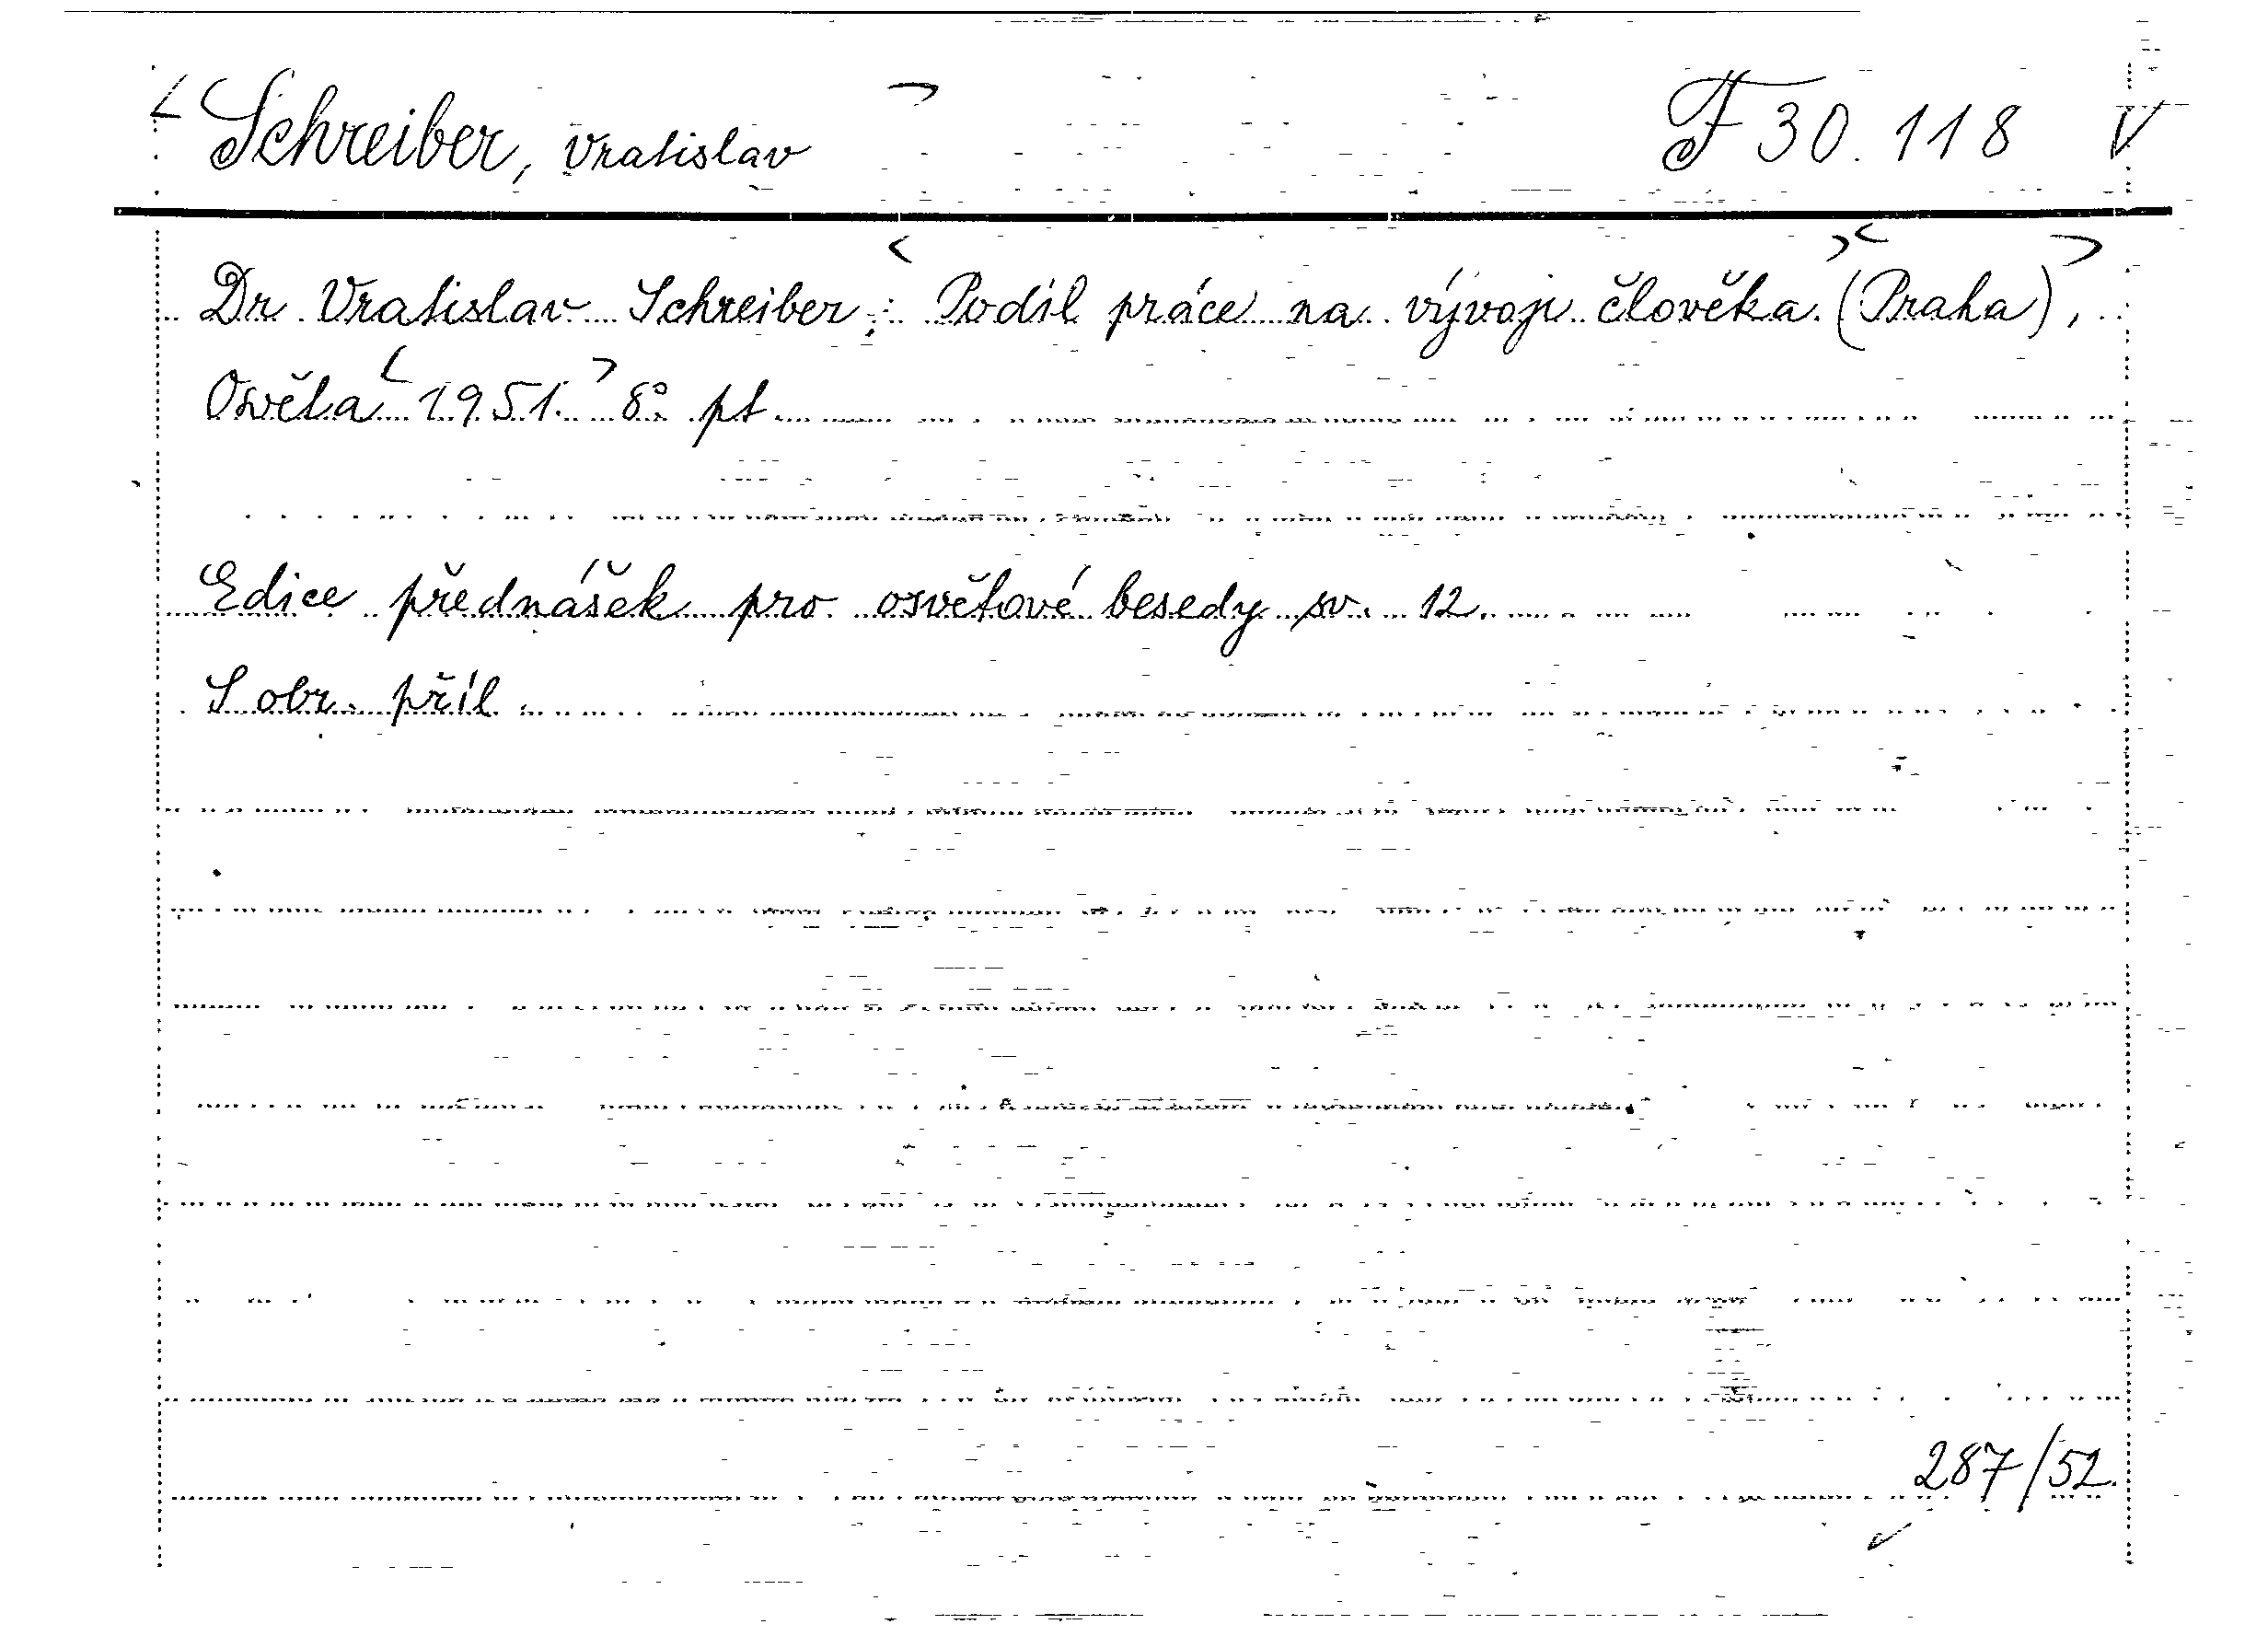 Schreiber, Vratislav F 30.118 V
Dr. Vratislav Schreiber: Podíl práce na vývoji člověka. (Praha),
Osvěta 1951. 8° pt
Edice přednášek pro osvětové besedy sv. 12.
S obr. příl.
287/52.